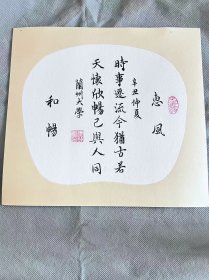 惠風
辛丑仲夏
時事遷流今猶古若
天懷欣暢己與人同
蘭州大學
和暢